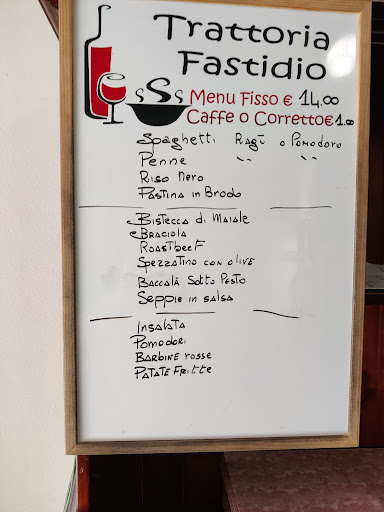 Trattoria
Fastidio
Menu Fisso € 14,00
Caffe o Corretto €1.00
Spaghetti Ragù o Pomodoro
Penne " "
Riso Nero
Pastina in Brodo
Bistecca di Maiale
Braciola
Roastbeef
Spezzatino con olive
Baccalà Sotto Pesto
Seppie in salsa
Insalata
Pomodori
Barbine rosse
Patate Fritte